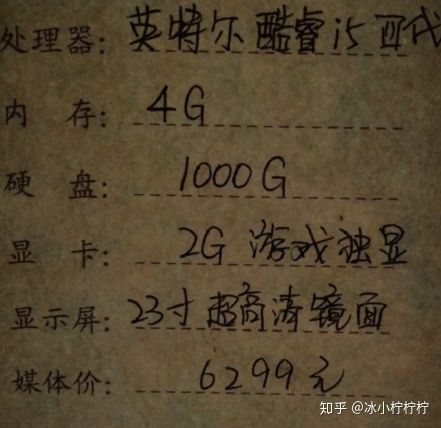 处理器: 英特尔酷睿i5四代
内存: 4G
硬盘: 1000G
显卡: 2G 游戏独显
显示屏: 23寸超高清镜面
媒体价: 6299元
知乎 @冰小柠柠柠